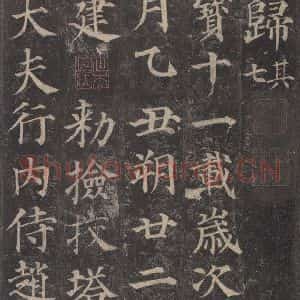 歸其七
寶十一載歲次
月乙丑朔廿二
建 勑撿挍塔
大夫行內侍趙